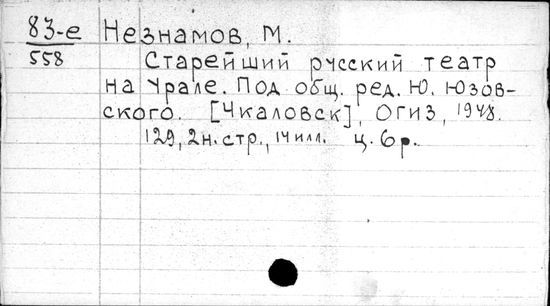 83-е Незнамов, М.
558 Старейший русский театр
на Урале. Под общ. ред. Ю. Юзов-
ского. [Чкаловск], Огиз, 1948.
129, 2н. стр., 14 илл. ц. 6 р.